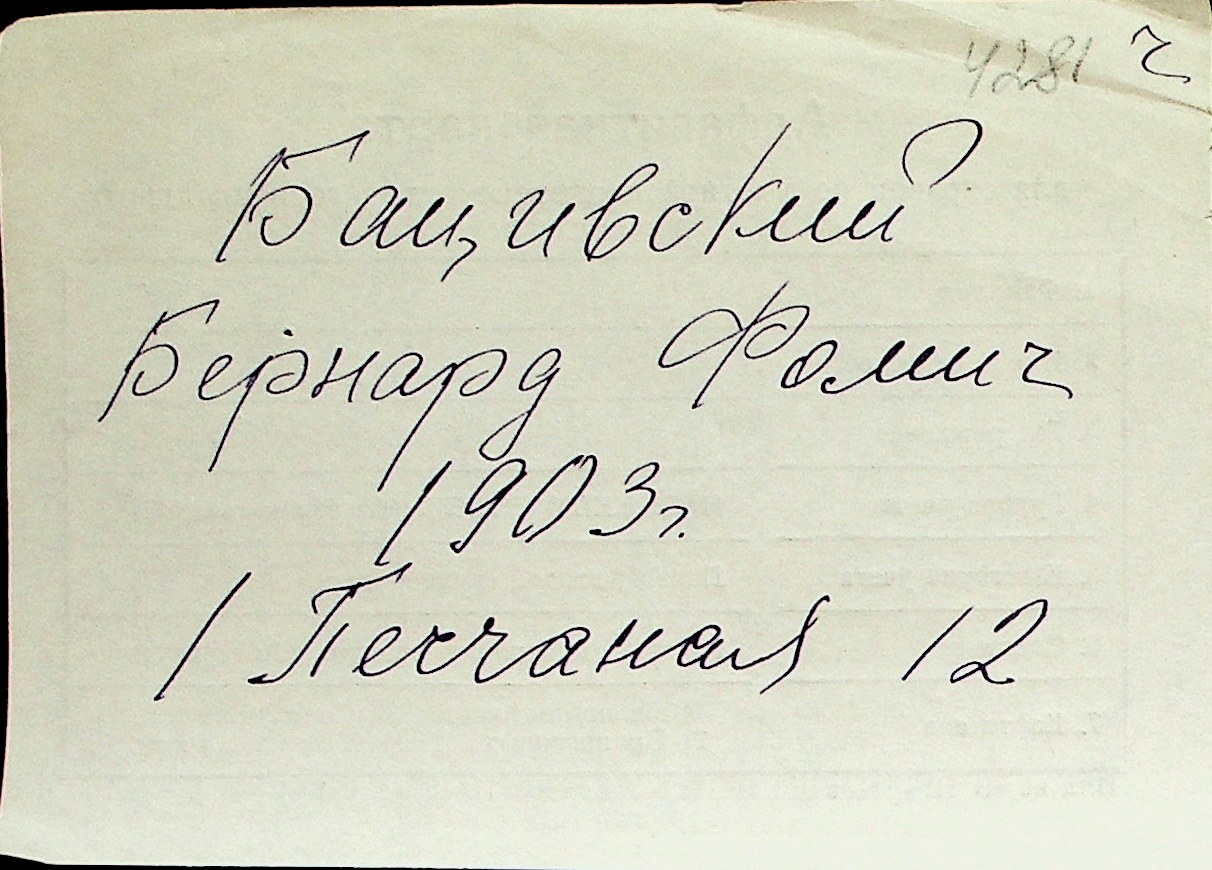 4281 ч
Бацивский
Бернард Фомич
1903г.
1 Песчаная 12